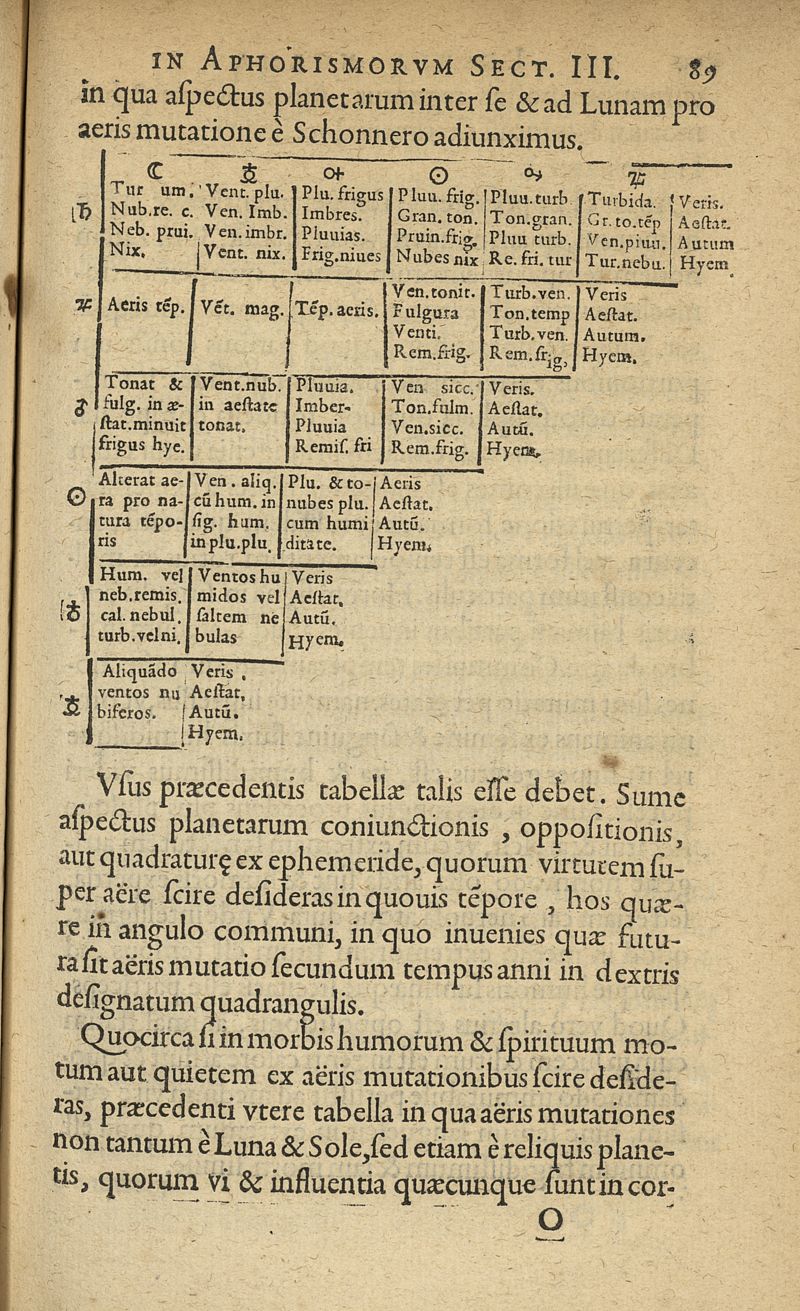 IN APHORISMORVM SECT. III. 89
in qua aſpectus planetarum inter ſe & ad Lunam pro
aeris mutatione è Schonnero adiunximus.
☾ ☿ ♀ ☉ ♂ ♃
♄ Tur um. Vent. plu. Plu. frigus Pluu. frig. Pluu. turb Turbida. Veris.
Nub.re. c. Ven. Imb. Imbres. Gran. ton. Ton.gran. Gr. to.tẽp Aeſtat.
Neb. prui. Ven. imbr. Pluuias. Pruin.frig. Pluu turb. Ven.pluu. Autum
Nix. Vent. nix. Frig.niues Nubes nix Re. fri. tur Tur.nebu. Hyem
♃ Aeris tẽp. Vẽt. mag. Tẽp. aeris. Ven.tonit. Turb.ven. Veris
Fulgura Ton.temp Aeſtat.
Venti. Turb.ven. Autum.
Rem.frig. Rem.frig, Hyem.
♂ Tonat & Vent.nub. Pluuia. Ven sicc. Veris.
fulg. in æ- in aeſtate Imber. Ton.fulm. Aeſtat.
ſtat.minuit tonat. Pluuia Ven.sicc. Autũ.
frigus hye. Remiſ. fri Rem.frig. Hyem.
☉ Alterat ae- Ven . aliq. Plu. & to- Aeris
ra pro na- cũ hum. in nubes plu. Aeſtat.
tura tẽpo- ſig. hum. cum humi Autũ.
ris in plu.plu. ditate. Hyem.
♀ Hum. vel Ventos hu Veris
neb.remis. midos vel Aeſtat.
cal. nebul. ſaltem ne Autũ.
turb.velni. bulas Hyem.
☿ Aliquãdo Veris .
ventos nu Aeſtat.
biferos. Autũ.
Hyem.
Vſus præcedentis tabellæ talis eſſe debet. Sume
aſpectus planetarum coniunctionis , oppoſitionis,
aut quadraturę ex ephemeride, quorum virtutem ſu-
per aëre ſcire deſideras in quouis tẽpore , hos quæ-
re in angulo communi, in quo inuenies quæ futu-
ra ſit aëris mutatio ſecundum tempus anni in dextris
deſignatum quadrangulis.
Quocirca ſi in morbis humorum & ſpirituum mo-
tum aut quietem ex aëris mutationibus ſcire deſide-
ras, præcedenti vtere tabella in qua aëris mutationes
non tantum è Luna & Sole, ſed etiam è reliquis plane-
tis, quorum vi & influentia quæcunque ſunt in cor-
O